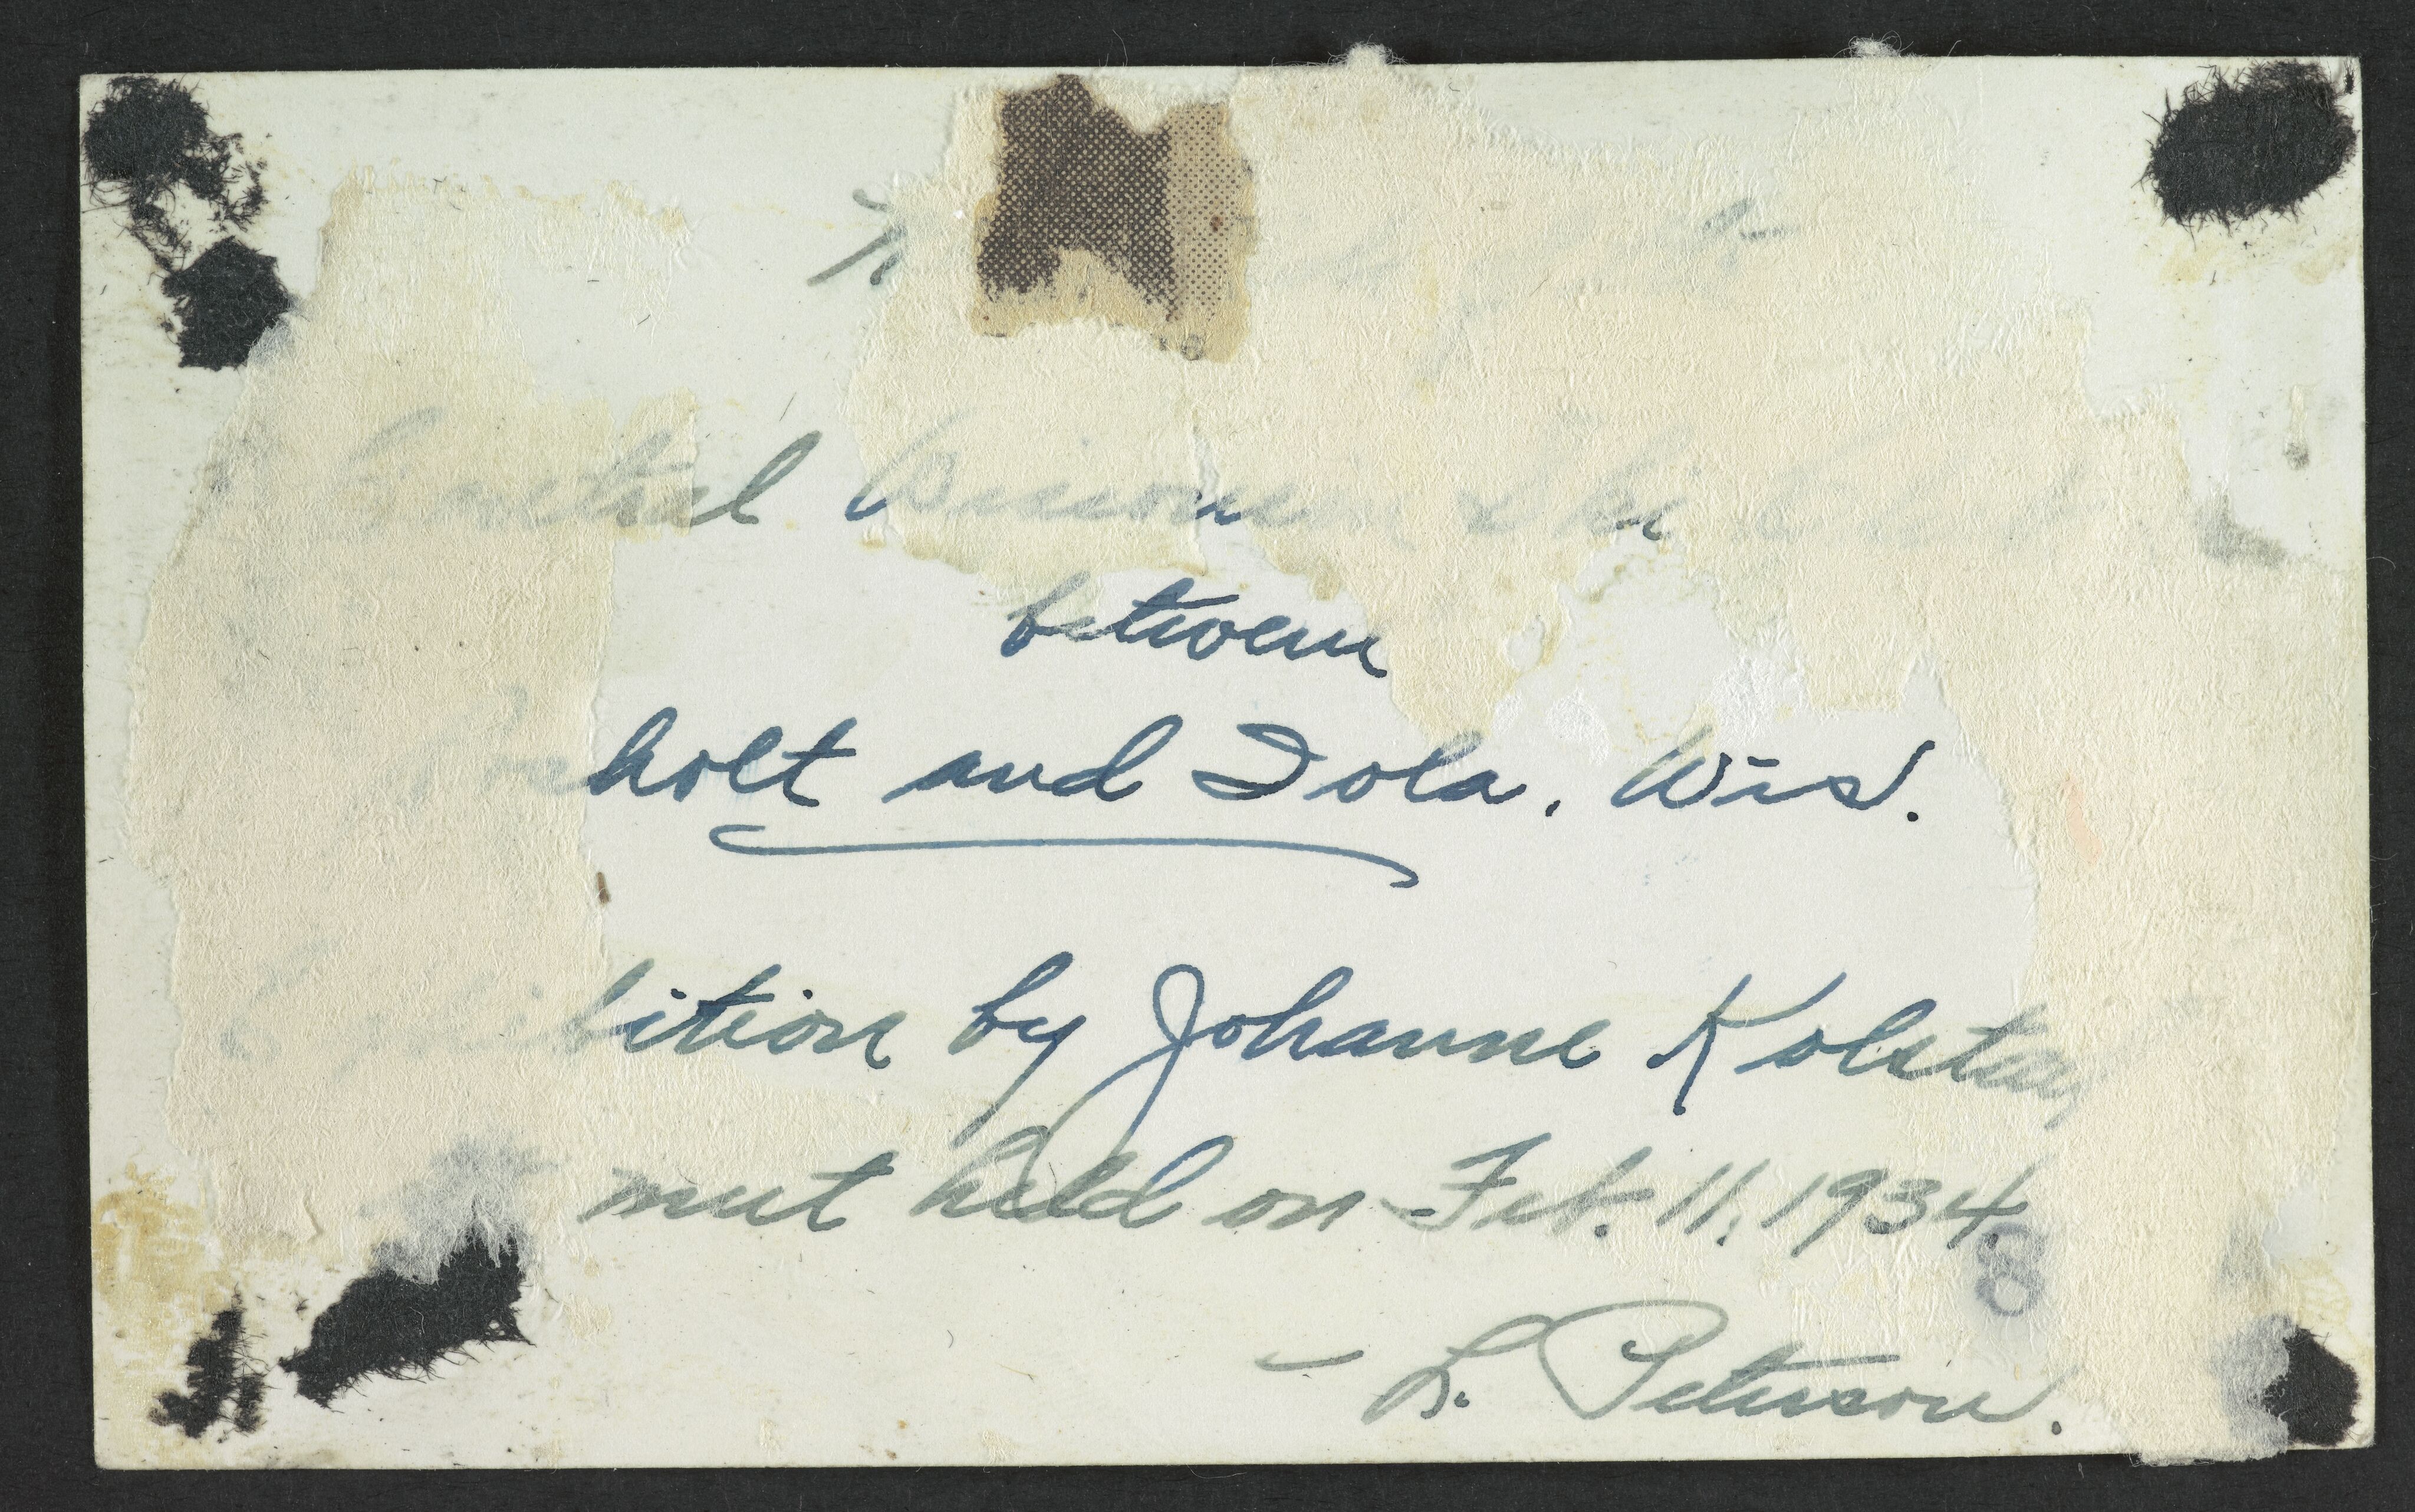 Central Wisconsin Ski
between
holt and Iola, Wis.
bition by Johanne Kolstad
meet held on Feb. 11, 1934.
8
- L. Peterson.